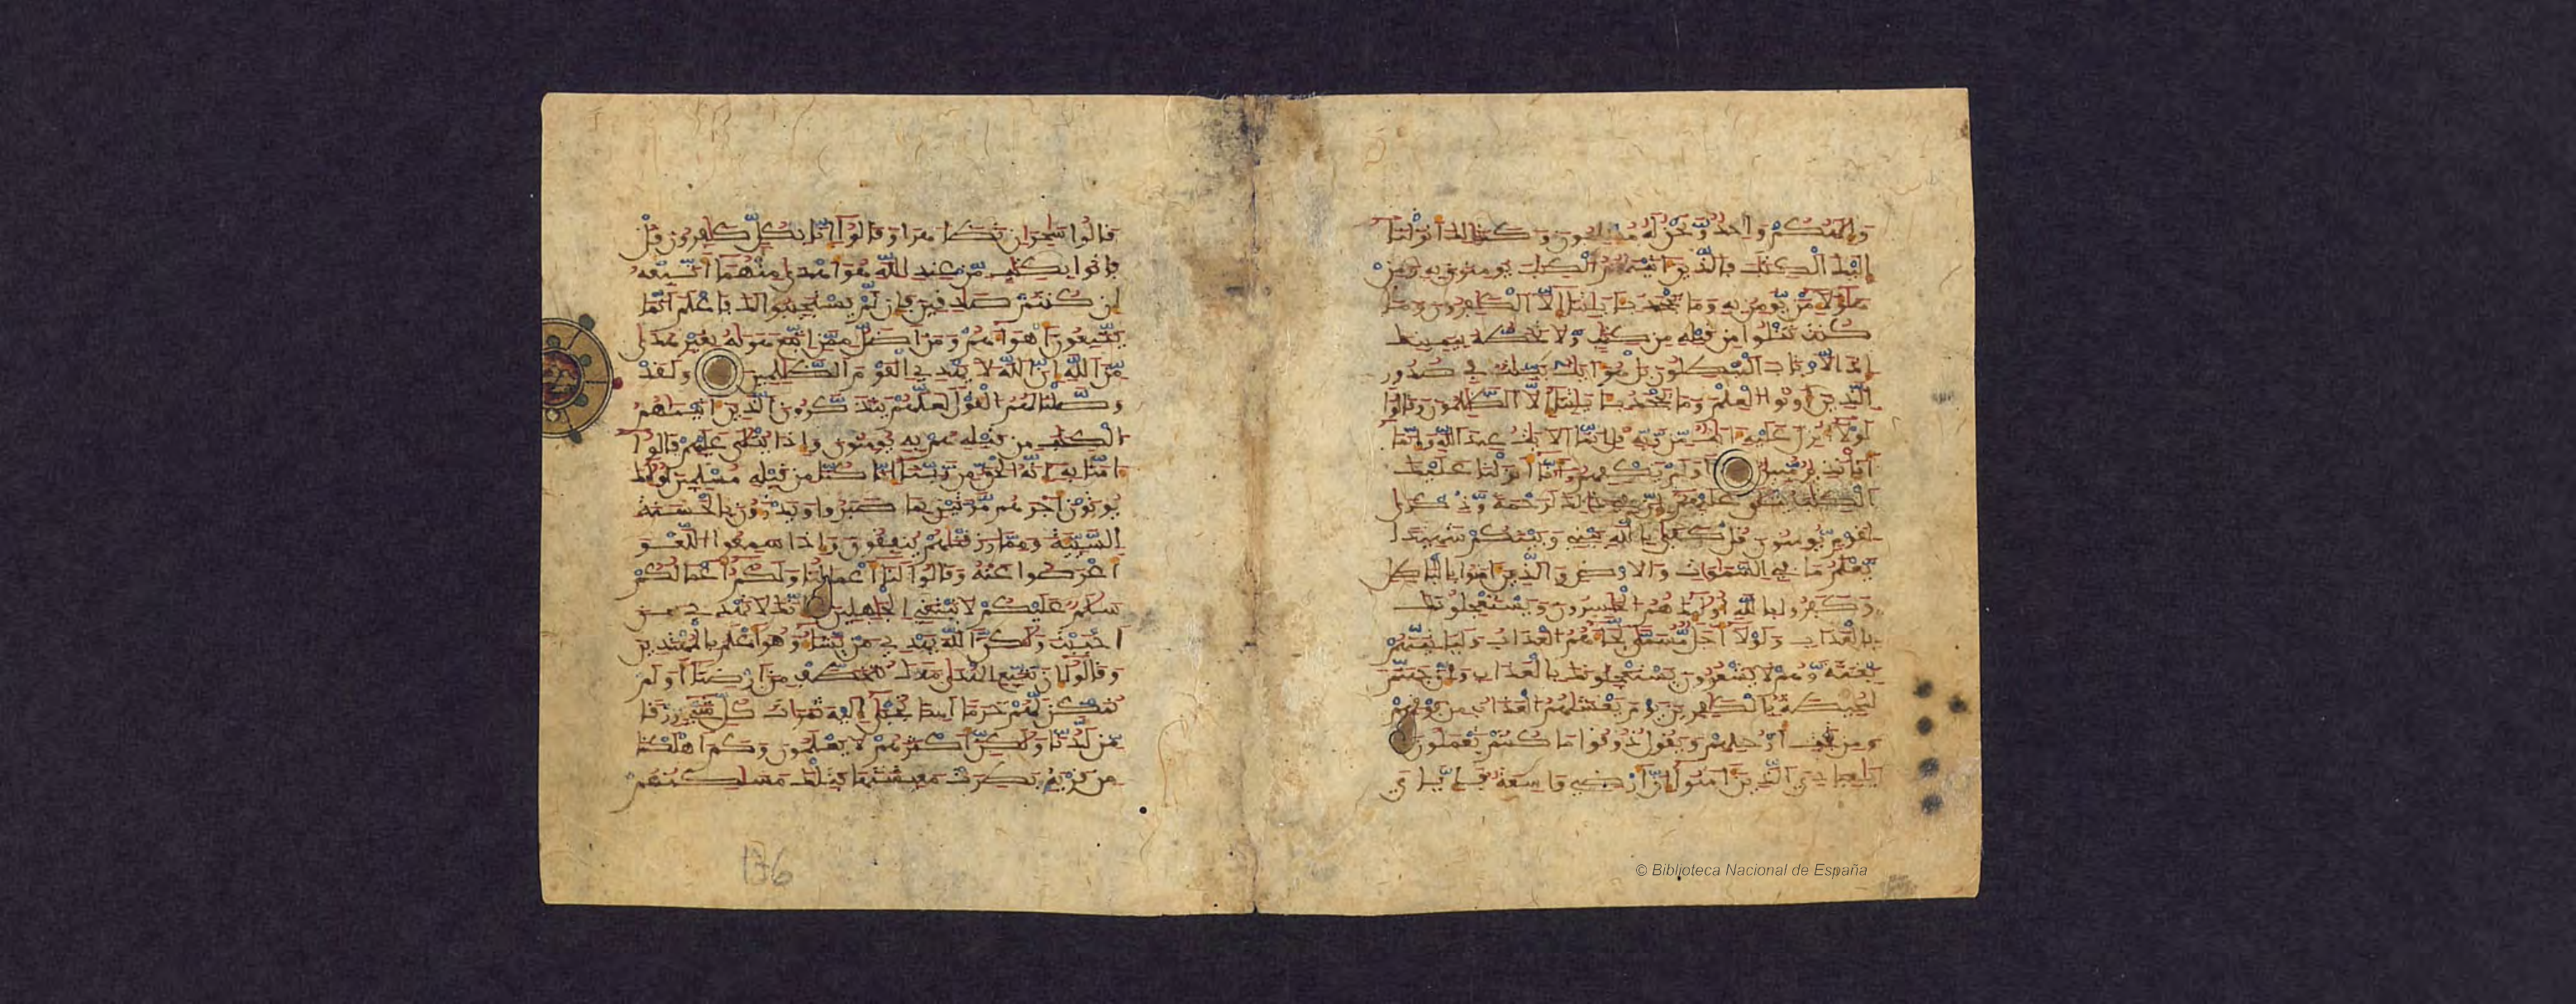 وَإِلَٰهُكُمْ وَٰحِدٌ وَنَحْنُ لَهُ مُسْلِمُونَ وَكَذَٰلِكَ أَنزَلْنَا
إِلَيْكَ الْكِتَٰبَ فَالَّذِينَ ءَاتَيْنَٰهُمُ الْكِتَٰبَ يُومِنُونَ بِهِ وَمِنْ
هَٰؤُلَاءِ مَن يُومِنُ بِهِ وَمَا يَجْحَدُ بِـَٔايَٰتِنَا إِلَّا الْكَٰفِرُونَ وَمَا
كُنتَ تَتْلُوا مِن قَبْلِهِ مِن كِتَٰبٍ وَلَا تَخُطُّهُ بِيَمِينِكَ
إِذًا لَّارْتَابَ الْمُبْطِلُونَ بَلْ هُوَ ءَايَٰتٌ بَيِّنَٰتٌ فِي صُدُورِ
الَّذِينَ أُوتُوا الْعِلْمَ وَمَا يَجْحَدُ بِـَٔايَٰتِنَا إِلَّا الظَّٰلِمُونَ وَقَالُوا
لَوْلَا أُنزِلَ عَلَيْهِ ءَايَٰتٌ مِّن رَّبِّهِ قُلْ إِنَّمَا الْأيَٰتُ عِندَ اللَّهِ وَإِنَّمَا
أَنَا نَذِيرٌ مُّبِينٌ أَوَلَمْ يَكْفِهِمْ أَنَّا أَنزَلْنَا عَلَيْكَ
الْكِتَٰبَ يُتْلَىٰ عَلَيْهِمْ إِنَّ فِي ذَٰلِكَ لَرَحْمَةً وَذِكْرَىٰ
لِقَوْمٍ يُومِنُونَ قُلْ كَفَىٰ بِاللَّهِ بَيْنِي وَبَيْنَكُمْ شَهِيدًا
يَعْلَمُ مَا فِي السَّمَٰوَٰتِ وَالْأَرْضِ وَالَّذِينَ ءَامَنُوا بِالْبَٰطِلِ
وَكَفَرُوا بِاللَّهِ أُولَٰئِكَ هُمُ الْخَٰسِرُونَ وَيَسْتَعْجِلُونَكَ
بِالْعَذَابِ وَلَوْلَا أَجَلٌ مُّسَمًّى لَّجَاءَهُمُ الْعَذَابُ وَلَيَاتِيَنَّهُم
بَغْتَةً وَهُمْ لَا يَشْعُرُونَ يَسْتَعْجِلُونَكَ بِالْعَذَابِ وَإِنَّ جَهَنَّمَ
لَمُحِيطَةٌ بِالْكَٰفِرِينَ يَوْمَ يَغْشَىٰهُمُ الْعَذَابُ مِن فَوْقِهِمْ
وَمِن تَحْتِ أَرْجُلِهِمْ وَيَقُولُ ذُوقُوا مَا كُنتُمْ تَعْمَلُونَ
يَٰعِبَادِيَ الَّذِينَ ءَامَنُوا إِنَّ أَرْضِي وَٰسِعَةٌ فَإِيَّٰيَ
قَالُوا سَٰحِرَٰنِ تَظَٰهَرَا وَقَالُوا إِنَّا بِكُلٍّ كَٰفِرُونَ قُلْ
فَاتُوا بِكِتَٰبٍ مِّنْ عِندِ اللَّهِ هُوَ أَهْدَىٰ مِنْهُمَا أَتَّبِعْهُ
إِن كُنتُمْ صَٰدِقِينَ فَإِن لَّمْ يَسْتَجِيبُوا لَكَ فَاعْلَمْ أَنَّمَا
يَتَّبِعُونَ أَهْوَاءَهُمْ وَمَنْ أَضَلُّ مِمَّنِ اتَّبَعَ هَوَىٰهُ بِغَيْرِ هُدًى
مِّنَ اللَّهِ إِنَّ اللَّهَ لَا يَهْدِي الْقَوْمَ الظَّٰلِمِينَ وَلَقَدْ
وَصَّلْنَا لَهُمُ الْقَوْلَ لَعَلَّهُمْ يَتَذَكَّرُونَ الَّذِينَ ءَاتَيْنَٰهُمُ
الْكِتَٰبَ مِن قَبْلِهِ هُم بِهِ يُومِنُونَ وَإِذَا يُتْلَىٰ عَلَيْهِمْ قَالُوا
ءَامَنَّا بِهِ إِنَّهُ الْحَقُّ مِن رَّبِّنَا إِنَّا كُنَّا مِن قَبْلِهِ مُسْلِمِينَ أُولَٰئِكَ
يُوتَوْنَ أَجْرَهُم مَّرَّتَيْنِ بِمَا صَبَرُوا وَيَدْرَءُونَ بِالْحَسَنَةِ
السَّيِّئَةَ وَمِمَّا رَزَقْنَٰهُمْ يُنفِقُونَ وَإِذَا سَمِعُوا اللَّغْوَ
أَعْرَضُوا عَنْهُ وَقَالُوا لَنَا أَعْمَٰلُنَا وَلَكُمْ أَعْمَٰلُكُمْ
سَلَٰمٌ عَلَيْكُمْ لَا نَبْتَغِي الْجَٰهِلِينَ إِنَّكَ لَا تَهْدِي مَنْ
أَحْبَبْتَ وَلَٰكِنَّ اللَّهَ يَهْدِي مَن يَشَاءُ وَهُوَ أَعْلَمُ بِالْمُهْتَدِينَ
وَقَالُوا إِن نَّتَّبِعِ الْهُدَىٰ مَعَكَ نُتَخَطَّفْ مِنْ أَرْضِنَا أَوَلَمْ
نُمَكِّن لَّهُمْ حَرَمًا ءَامِنًا تُجْبَىٰ إِلَيْهِ ثَمَرَٰتُ كُلِّ شَيْءٍ رِّزْقًا
مِّن لَّدُنَّا وَلَٰكِنَّ أَكْثَرَهُمْ لَا يَعْلَمُونَ وَكَمْ أَهْلَكْنَا
مِن قَرْيَةٍ بَطِرَتْ مَعِيشَتَهَا فَتِلْكَ مَسَٰكِنُهُمْ
136
© Biblioteca Nacional de España